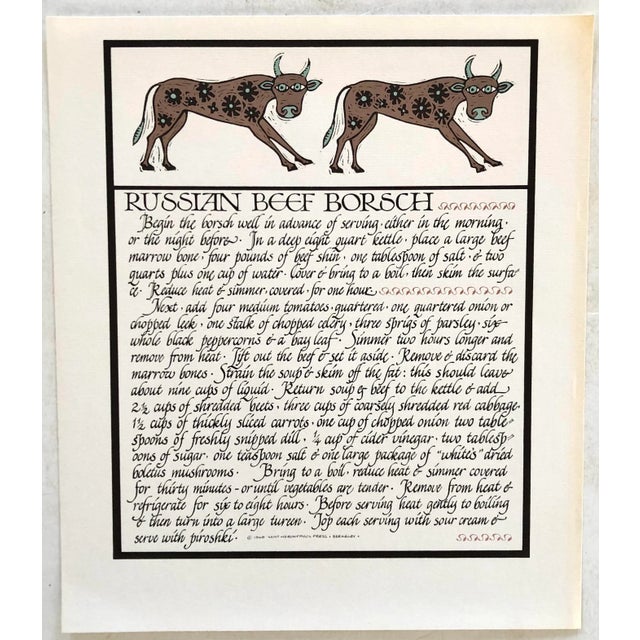 RUSSIAN BEEF BORSCH
Begin the borsch well in advance of serving · either in the morning ·
or the night before · In a deep eight quart kettle · place a large beef
marrow bone · four pounds of beef shin · one tablespoon of salt · & two
quarts plus one cup of water · Cover & bring to a boil, then skim the surfa-
ce · Reduce heat & simmer · covered · for one hour ·
Next · add four medium tomatoes · quartered · one quartered onion or
chopped leek · one stalk of chopped celery · three sprigs of parsley · six
whole black peppercorns & a bay leaf · Simmer two hours longer and
remove from heat · Lift out the beef & set it aside · Remove & discard the
marrow bones · Strain the soup & skim off the fat · this should leave
about nine cups of liquid · Return soup & beef to the kettle & add
2½ cups of shredded beets · three cups of coarsely shredded red cabbage ·
1½ cups of thickly sliced carrots · one cup of chopped onion · two table-
spoons of freshly snipped dill · ¼ cup of cider vinegar · two tablesp-
oons of sugar · one teaspoon salt & one large package of "white" dried
boletus mushrooms · Bring to a boil · reduce heat & simmer covered
for thirty minutes - or until vegetables are tender · Remove from heat &
refrigerate for six to eight hours · Before serving heat gently to boiling
& then turn into a large tureen · Top each serving with sour cream &
serve with piroshki · © PRESS · BERKELEY ·